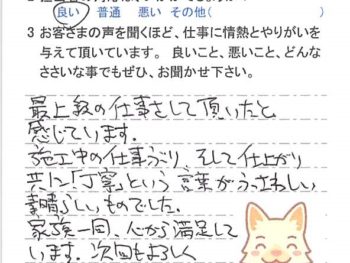 良い 普通 悪い その他( )
3 お客さまの声を聞くほど、仕事に情熱とやりがいを
与えて頂いています。 良いこと、悪いこと、どんな
ささいな事でもぜひ、お聞かせ下さい。
最上級の仕事をして頂いたと
感じています。
施工中の仕事ぶり、そして仕上がり
共に「丁寧」という言葉がふさわしい
素晴らしいものでした。
家族一同、心から満足して
います。次回もよろしく